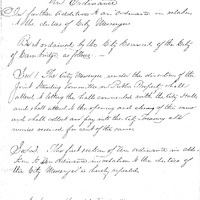 An Ordinance
In further addition to an ordinance in relation
to the duties of City Messenger
Be it ordained by the City Council of the City
of Cambridge as follows:
Sec. 1 The City Messenger under the direction of the
Joint Standing Committee on Public Property shall
attend to letting the hall connected with the City Hall
and shall attend to the opening and closing of the same
and shall collect and pay into the City Treasury all
monies received for rent of the same.
Sec. 2. The first section of the ordinance in addi-
tion to an Ordinance in relation to the duties of
the City Messenger is hereby repealed.